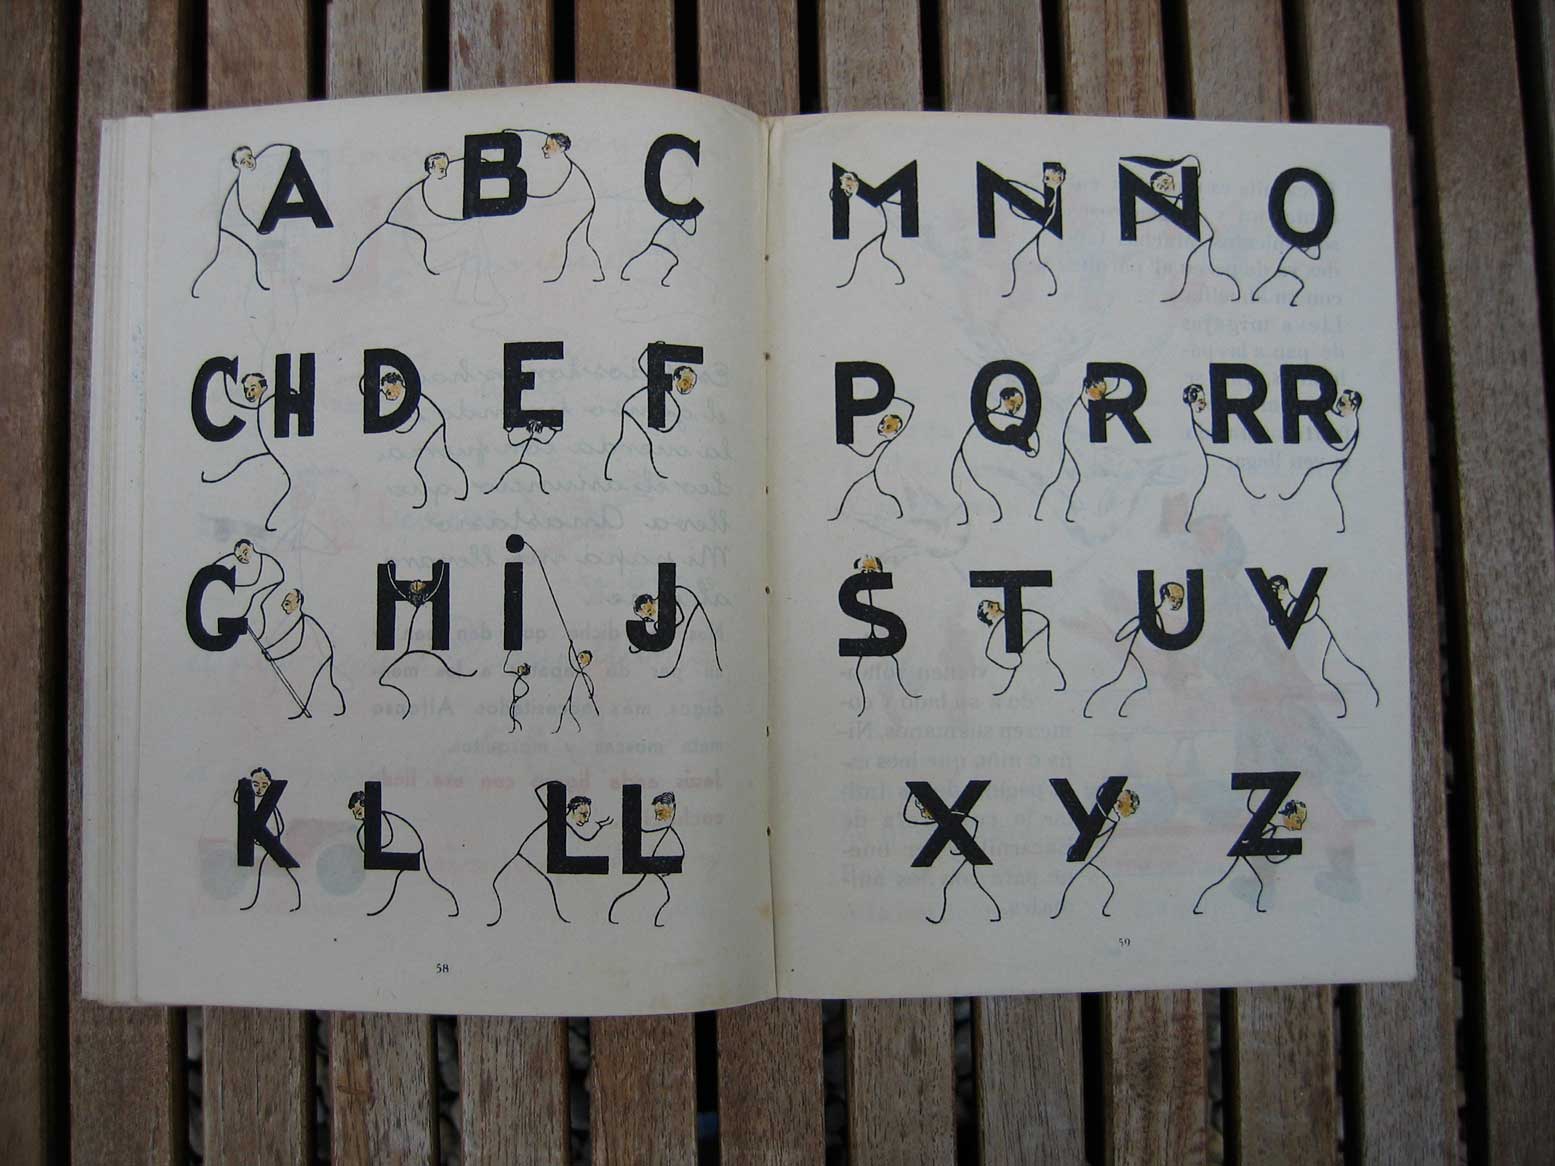 A B C
CH D E F
G H i J
K L LL
58
M N Ñ O
P Q R RR
S T U V
X Y Z
59